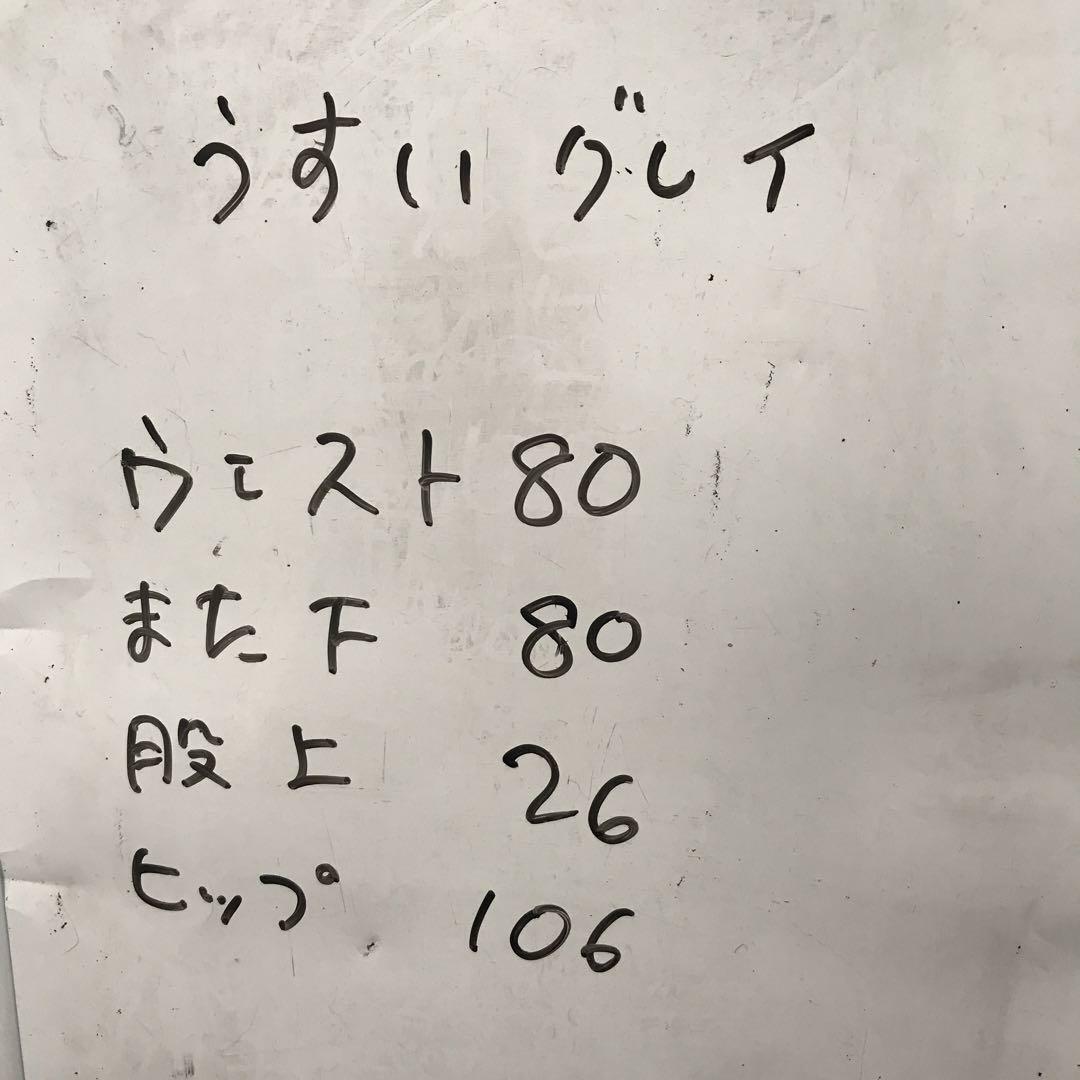 うすいグレイ
ウエスト 80
また下 80
股上 26
ヒップ 106